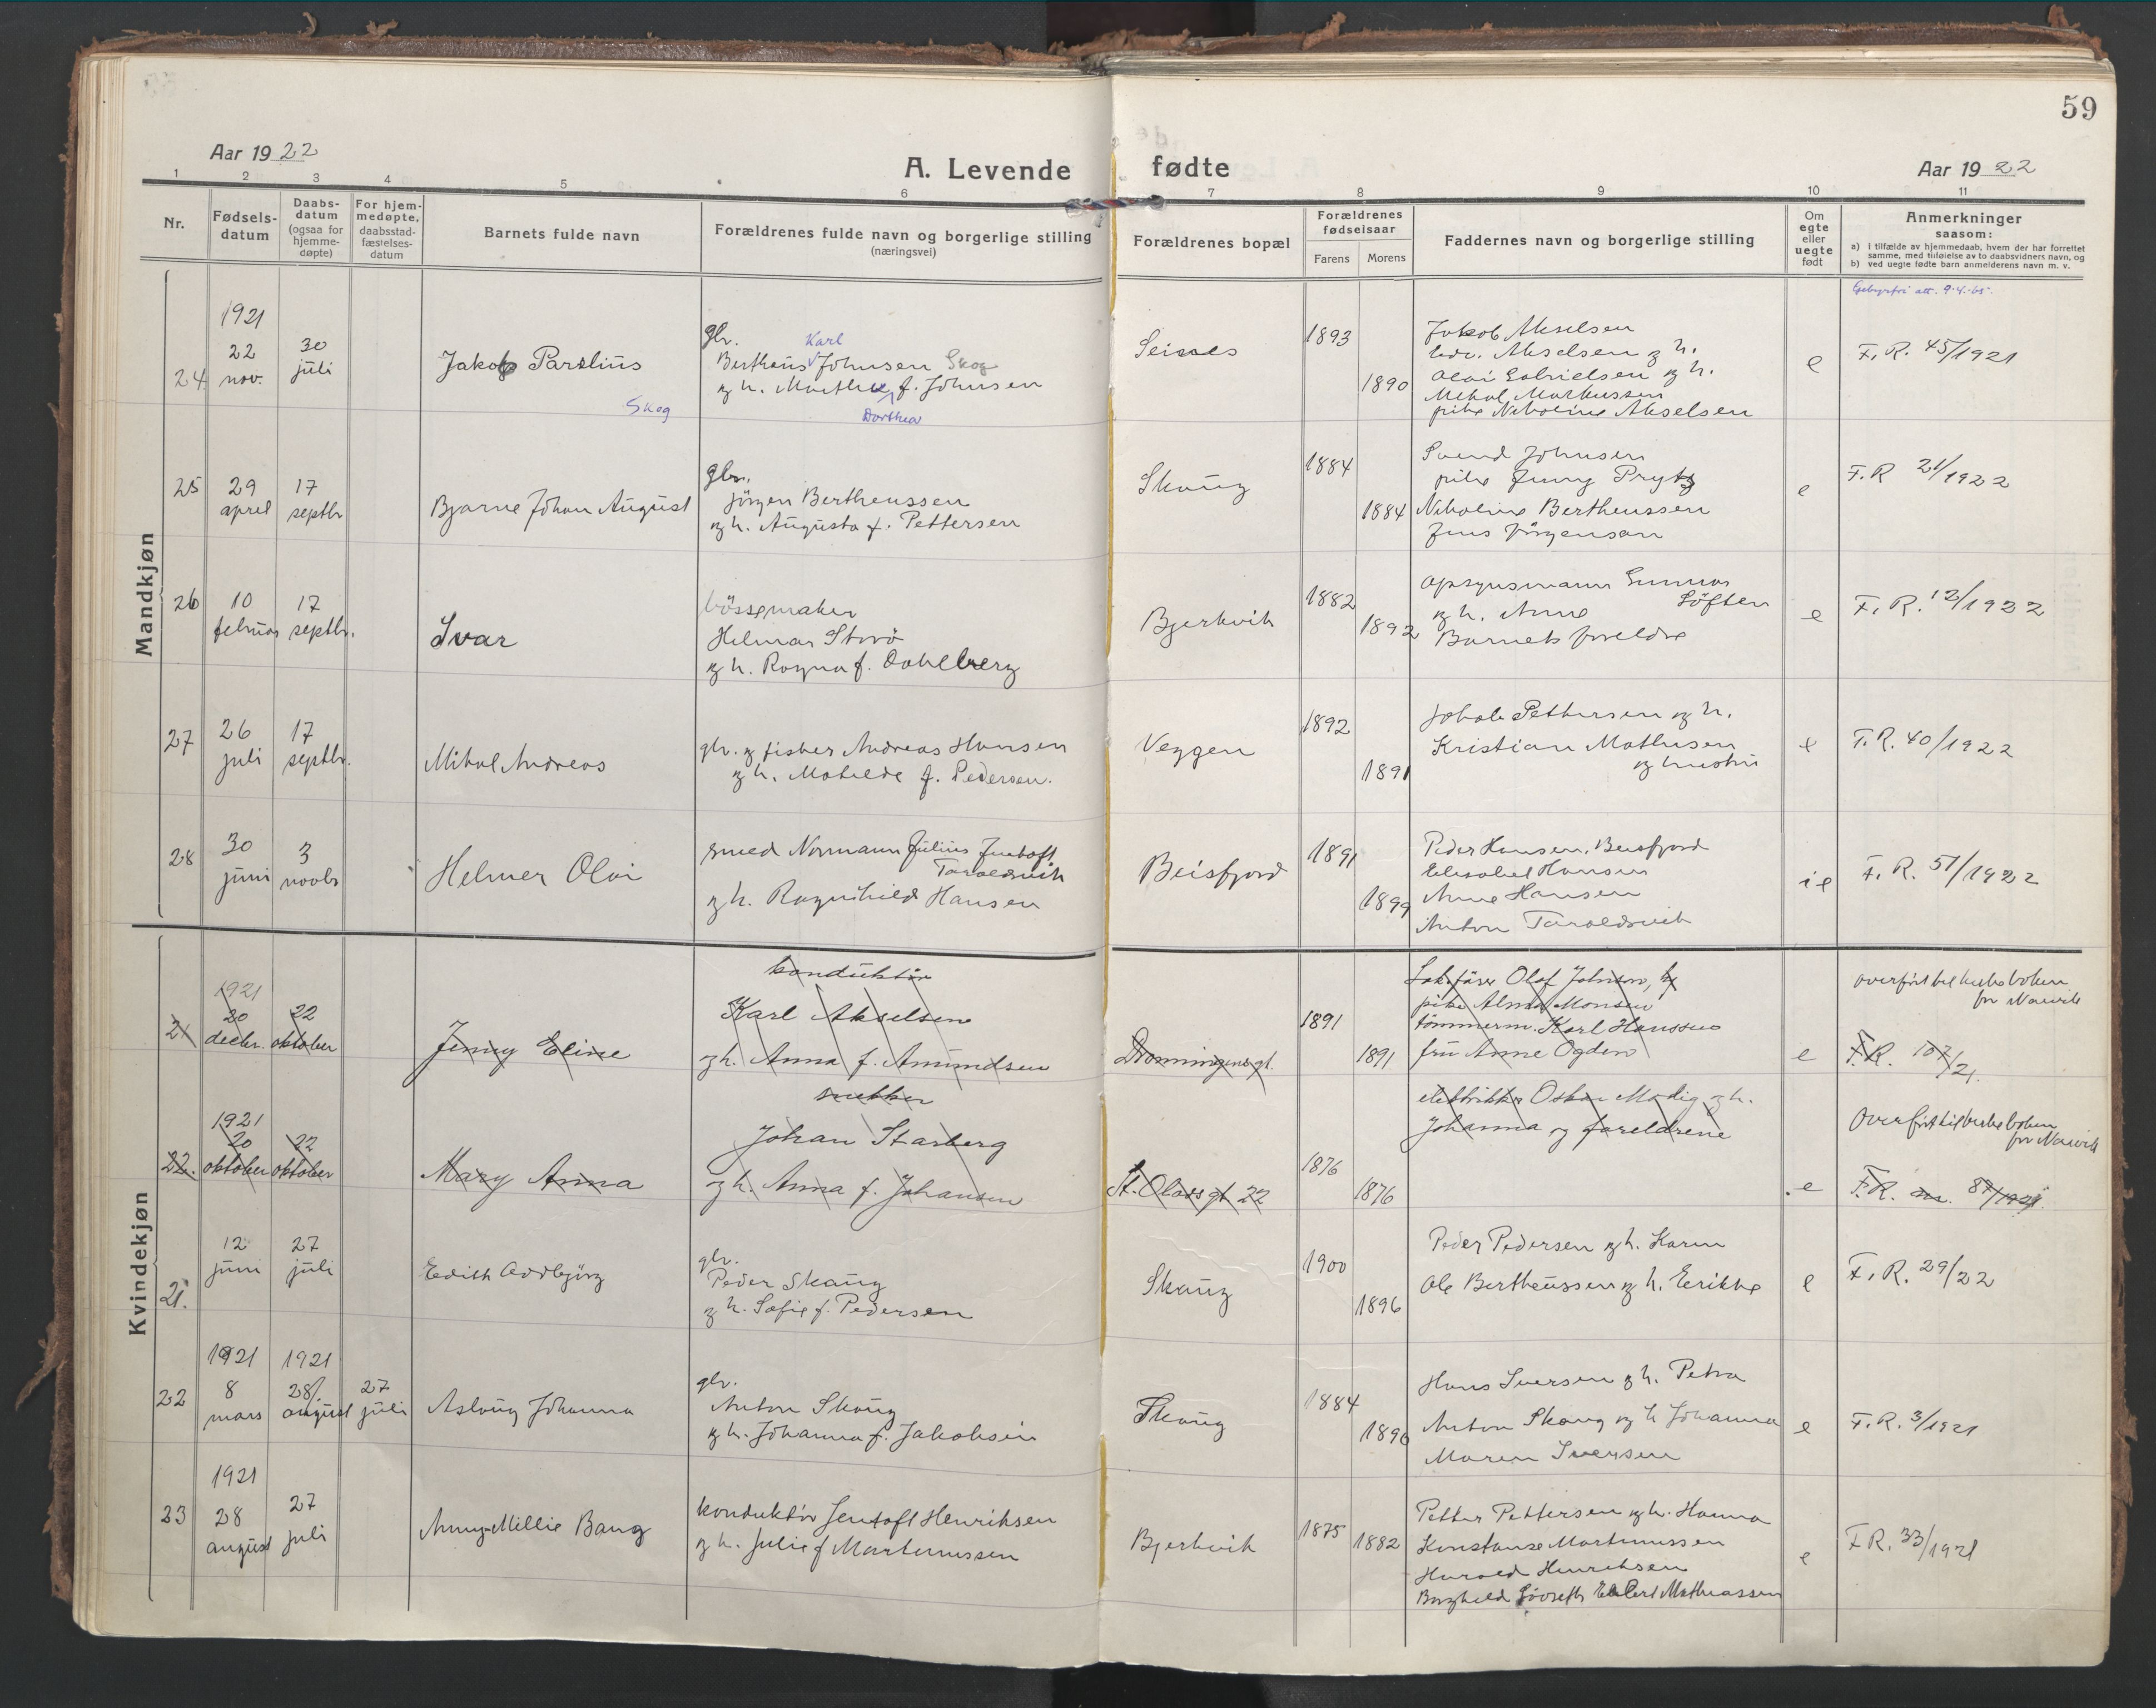 59
Aar 1922
A. Levende fødte
Aar 1922
1 2 3 4 5 6 7 8 9 10 11
Nr.
Fødsels-
datum
Daabs-
datum
(ogsaa for
hjemme-
døpte)
For hjem-
medøpte,
daabsstad-
fæstelses-
datum
Barnets fulde navn
Forældrenes fulde navn og borgerlige stilling
(næringsvei)
Forældrenes bopæl
Forældrenes
fødselsaar
Farens Morens
Faddernes navn og borgerlige stilling
Om
egte
eller
uegte
født
Anmerkninger
saasom:
a) i tilfælde av hjemmedaab, hvem der har forrettet
samme, med tilføielse av to daabsvidners navn, og
b) ved uegte fødte barn anmelderens navn m. v.
Mandkjøn
24
1921
22
nov.
30
juli
Jakob Parelius
Skog
gbr.
Karl
Bertheus Johnsen Skog
og h. Marthe f. Johnsen
Dorthea
Seines
1893
1890
Jakob Akselsen
Edv. Akselsen og h.
Olai Gabrielsen og h.
Mikal Markussen
pike Nikoline Akselsen
e
Gebyrfri att. 9.4.-65.
F. R. 45/1921
25
29
april
17
septbr
Bjarne Johan August
gbr.
Jörgen Bertheussen
og h. Augusta f. Pettersen
Skoug
1884
1884
Svend Johnsen
pike Jenny Prytz
Nikoline Bertheussen
Jens Jörgensen
e
F. R 21/1922
26
10
februar
17
septbr.
Ivar
bössemaker
Helmar Storö
og h. Ragna f. Dahlberg
Bjerkvik
1882
1892
opsynsmann Gunnar
Löften
og h. Anne
Barnets foreldre
e
F. R. 12/1922
27
26
juli
17
septbr.
Mikal Andreas
gbr. og fisker Andreas Hansen
og h. Matilde f. Pedersen.
Veggen
1892
1891
Jakob Pettersen og h.
Kristian Mathisen
og hustru
e
F. R. 40/1922
28
30
juni
3
novbr
Helmer Olai
smed Normann Julius Jentoft
Taraldsvik
og h. Ragnhild Hansen
Beisfjord
1891
1899
Peder Hansen, Beisfjord
Elisabet Hansen
Anne Hansen
Anton Taraldsvik
F. R. 51/1922
Kvindekjøn
21
1921
20
decbr.
22
oktober
Jenny Eline
konduktör
Karl Akselsen
og h. Anna f. Amundsen
Dronningensgt.
1891
1891
Olof Johnson,
pike Alma Monsen
tömmerm. Karl Hanssen
fru Anne Ogden
e
overfört til kirkeboken
for Narvik
F. R. 107/21.
22.
1921
20
oktober
22
oktober
Mary Anna
snekker
Johan Starberg
og h. Anna f. Johansen
St. Olavsgt 22
1876
1876
elektriker Oskar Modig og h.
Johanna og foreldrene
e
Overfört til kirkeboken
for Narvik
F. R. nr. 87/1921.
21.
12
juni
27
juli
Edith Oddbjörg
gbr.
Peder Skoug
og h. Sofie f. Pedersen
Skoug
1900
1896
Peder Pedersen og h. Karen
Ole Bertheussen og h. Erikke
e
F. R. 29/22
22
1921
8
mars
1921
28/
august
27
juli
Aslaug Johanna
gbr.
Anton Skoug
og h. Johanna f. Jakobsen
Skoug
1884
1896
Hans Iversen og h. Petra
Anton Skoug og h Johanna
Maren Iversen
e
F. R. 3/1921
23
1921
28
august
27
juli
Anny Millie Bang
konduktör Jentoft Henriksen
og h. Julie f Martinussen
Bjerkvik
1875
1882
Petter Pettersen og h. Hanna
Konstanse Martinussen
Harald Henriksen
Borghild Mathiassen
e
F R. 33/1921